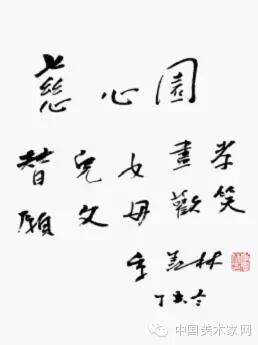 慈心園
替兒女盡孝
願父母歡笑
季羡林
丁亥冬
中国美术家网